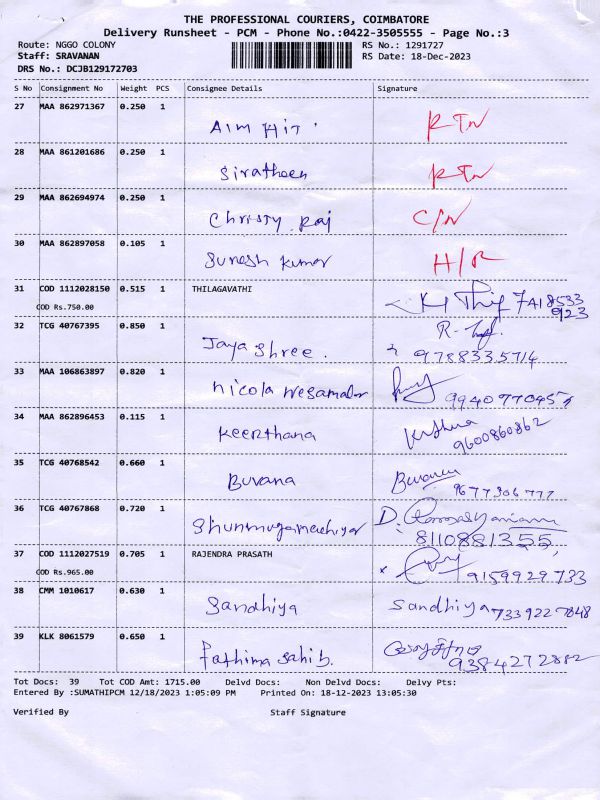 THE PROFESSIONAL COURIERS, COIMBATORE
Delivery Runsheet - PCM - Phone No.:0422-3505555 - Page No.:3
Route: NGGO COLONY RS No.: 1291727
Staff: SRAVANAN RS Date: 18-Dec-2023
DRS No.: DCJB129172703
S No Consignment No Weight PCS Consignee Details Signature
27 MAA 862971367 0.250 1
RTN
28 MAA 861201686 0.250 1
Siratheen RTN
29 MAA 862694974 0.250 1
Christy Raj C/N
30 MAA 862897058 0.105 1
Suresh Kumar H/R
31 COD 1112028150 0.515 1 THILAGAVATHI
COD Rs.750.00
32 TCG 40767395 0.850 1
Jaya shree. 9788335714
33 MAA 106863897 0.820 1
nicola
34 MAA 862896453 0.115 1
Keerthana 9600860862
35 TCG 40768542 0.660 1
Buvana 9677306777
36 TCG 40767868 0.720 1
8110881355
37 COD 1112027519 0.705 1 RAJENDRA PRASATH
COD Rs.965.00 x 9159929733
38 CMM 1010617 0.630 1
Sandhiya Sandhiya 7339227848
39 KLK 8061579 0.650 1
Fathima Sahib. 9384272882
Tot Docs: 39 Tot COD Amt: 1715.00 Delvd Docs: Non Delvd Docs: Delvy Pts:
Entered By :SUMATHIPCM 12/18/2023 1:05:09 PM Printed On: 18-12-2023 13:05:30
Verified By Staff Signature